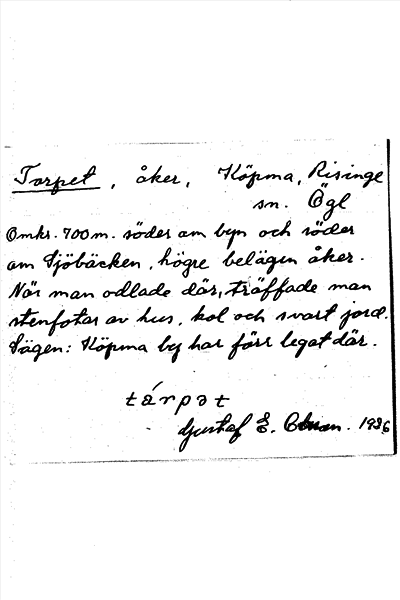 Torpet, åker, Köpma, Risinge
sn. Ögl
Omkr. 700 m. söder om byn och söder
om Sjöbäcken, högre belägen åker.
När man odlade där, träffade man
stenfotar av hus, kol och svart jord.
Sägen: Köpma by har förr legat där.
tárpət
Gustaf E. 1936